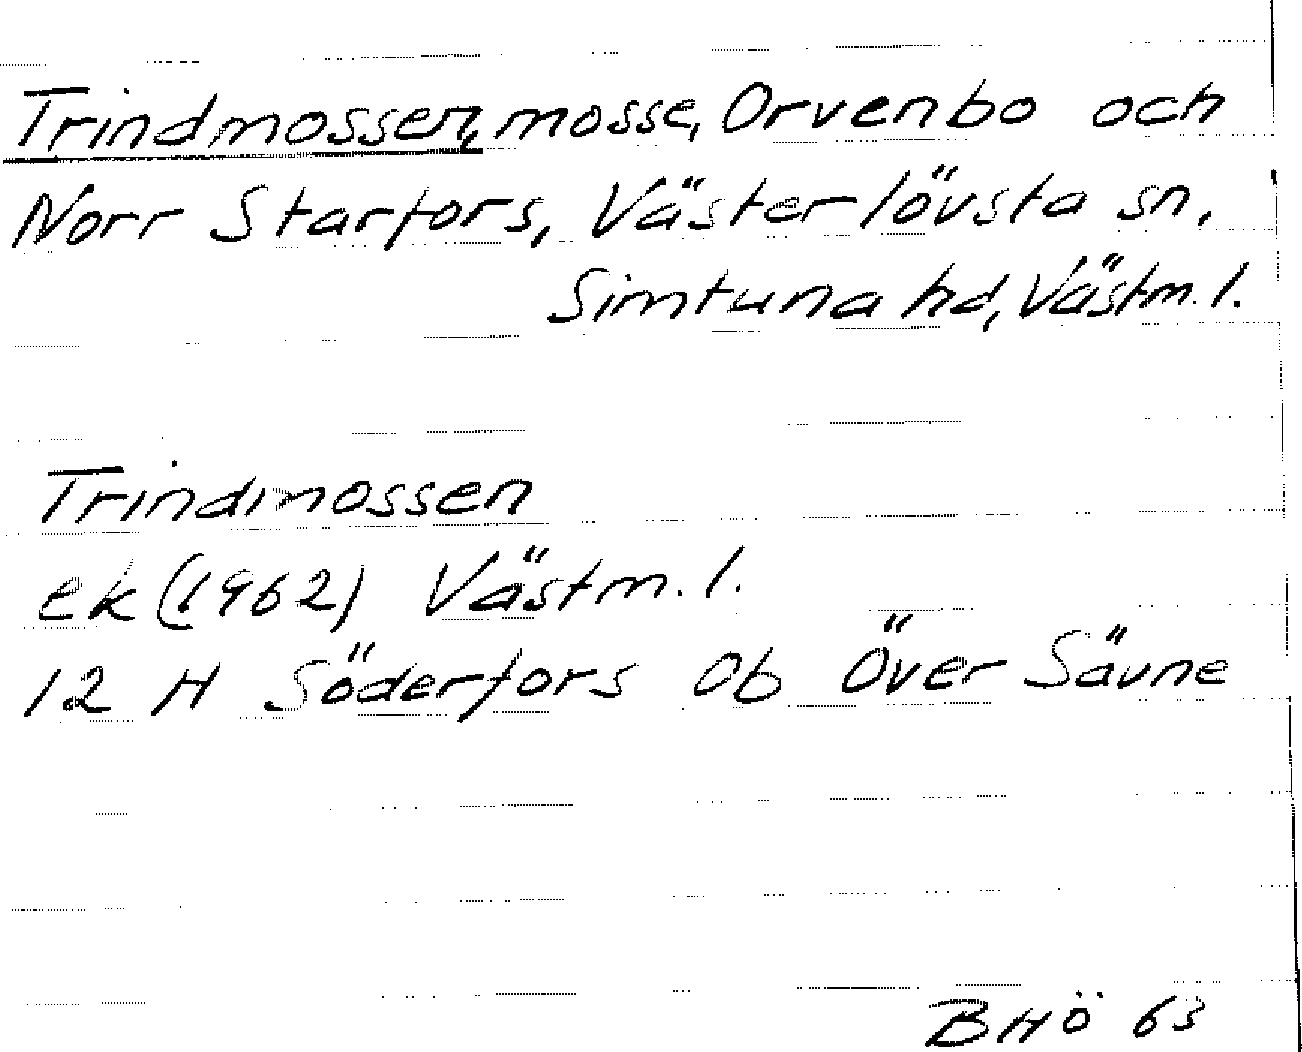 Trindmossen, mosse, Orvenbo och
Norr Starfors, Västerlövsta sn,
Simtuna hd, Västm. l.
Trindmossen
ek (1962) Västm. l.
12 H Söderfors Ob Över Sävne
BHÖ 63